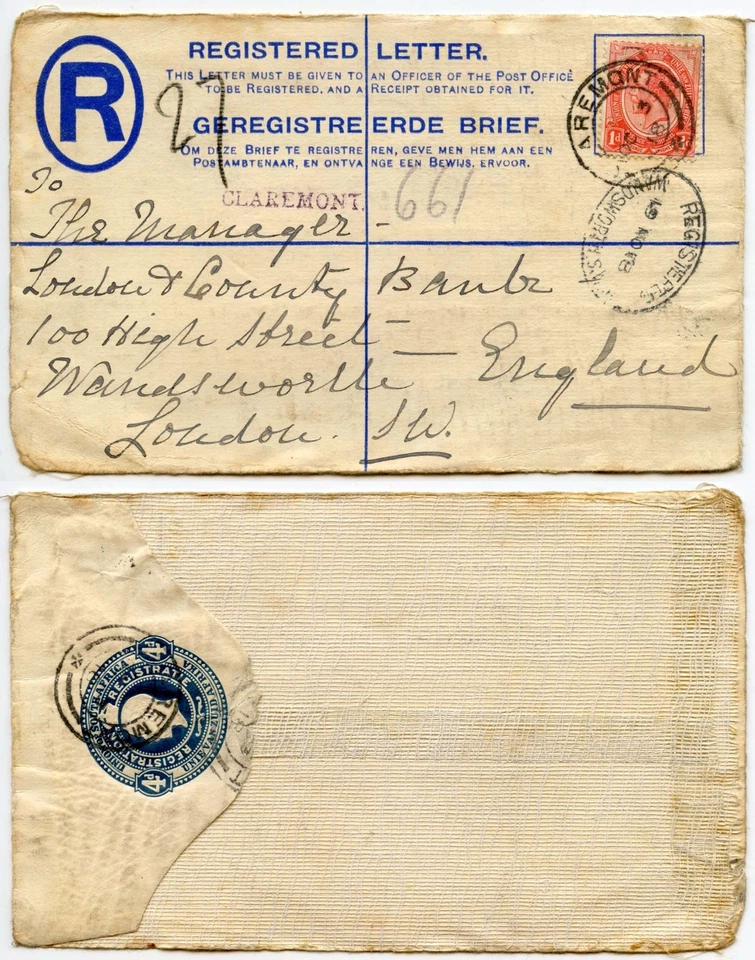 R
REGISTERED LETTER.
THIS LETTER MUST BE GIVEN TO AN OFFICER OF THE POST OFFICE
TO BE REGISTERED, AND A RECEIPT OBTAINED FOR IT.
GEREGISTREERDE BRIEF.
OM DEZE BRIEF TE REGISTREREN, GEVE MEN HEM AAN EEN
POSTAMBTENAAR, EN ONTVANGE EEN BEWIJS, ERVOOR.
27
1d 1d
AREMONT
CLAREMONT.
661
REGISTERED
WANDSWORTH S
NOV
To
The Manager -
London & County Bank
100 High Street — England
Wandsworth
London. S.W.
4d
REGISTRATIE
REGISTRATION
UNION OF SOUTH AFRICA
UNIE VAN ZUID AFRIKA
4d
REM